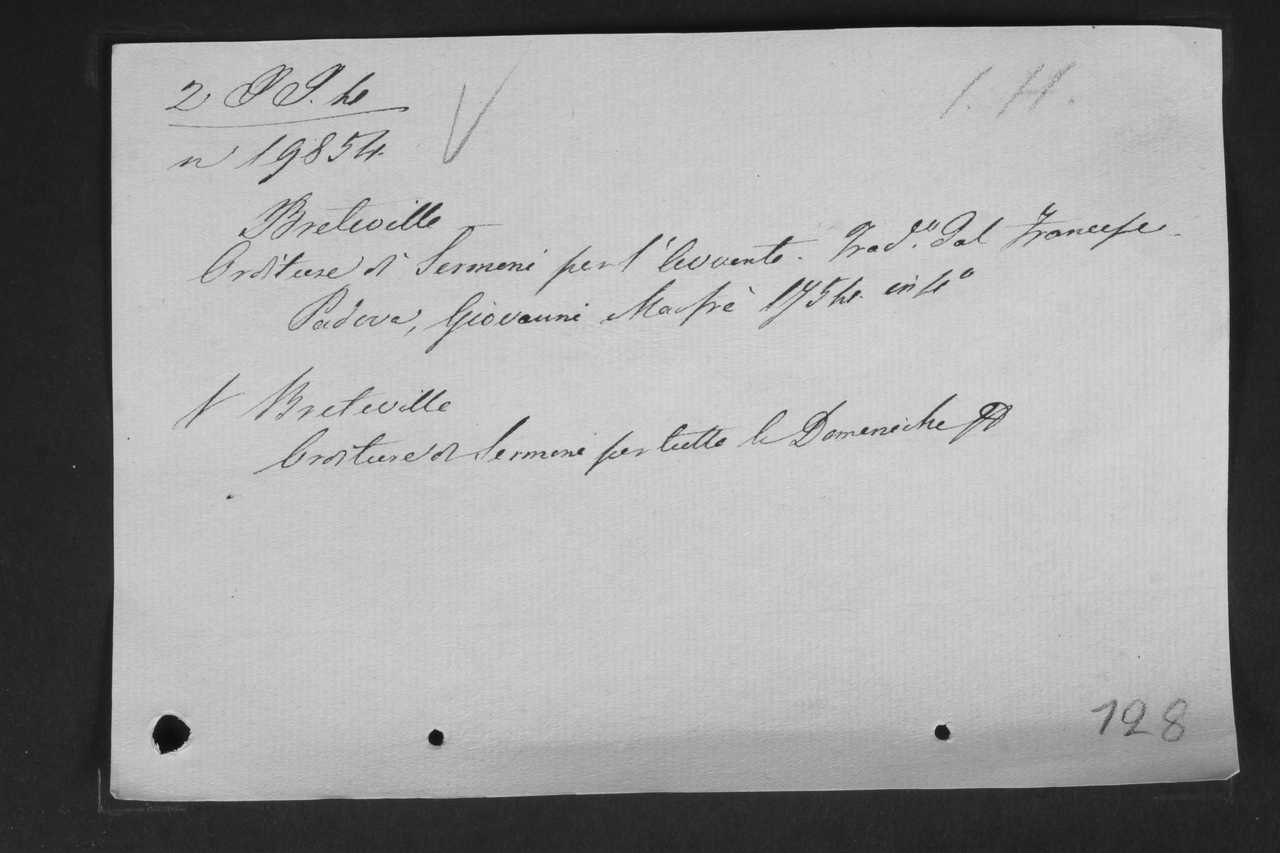 2 P P. 4
1. H.
n 19854
Breteville
Orditure di Sermoni per l'Avvento. Trad.e dal Francese.
Padova, Giovanni Manfrè 1754. in 4°
Breteville
Orditure di Sermoni per tutte le Domeniche
128